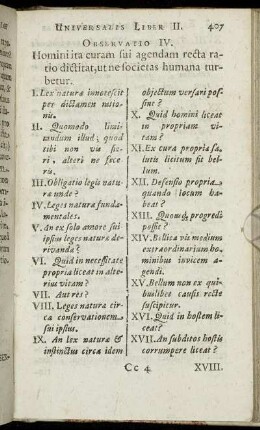 UNIVERSALIS LIBER II. 407
OBSERVATIO IV.
Homini ita curam sui agendam recta ra-
tio dictitat, ut ne societas humana tur-
betur.
I. Lex naturæ innotescit
per dictamen ratio-
nis.
II. Quomodo limi-
tandum illud, quod
tibi non vis fie-
ri, alteri ne fece-
ris.
III. Obligatio legis natu-
ræ unde?
IV. Leges naturæ funda-
mentales.
V. An ex solo amore sui
ipsius leges naturæ de-
rivandæ?
VI. Quid in necessitate
propria liceat in alte-
rius vitam?
VII. Aut res?
VIII. Leges naturæ cir-
ca conservationem
sui ipsius.
IX. An lex naturæ &
instinctus circa idem
objectum versari pos-
sint?
X. Quid homini liceat
in propriam vi-
tam?
XI. Ex cura propria sa-
lutis licitum sit bel-
lum.
XII. Defensio propria
quando locum ha-
beat?
XIII. Quomodo progredi
possit?
XIV. Bellica vis medium
extraordinarium ho-
minibus invicem a-
gendi.
XV. Bellum non ex qui-
buslibet causis recte
suscipitur.
XVI. Quid in hostem li-
ceat?
XVII. An subditos hostis
corrumpere liceat?
Cc 4 XVIII.